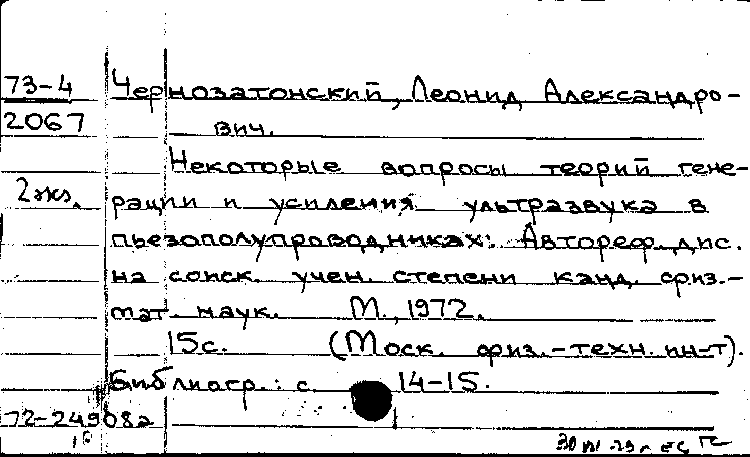 73-4 Чернозатонский, Леонид Александро-
2067 вич.
Некоторые вопросы теорий гене-
2 экз. рации и усиления ультразвука в
пьезополупроводниках: Автореф. дис.
на соиск. учен. степени канд. физ.-
мат. наук. М., 1972.
15с. (Моск. физ.-техн. ин-т).
Библиогр.: с. 14-15.
72-24908а